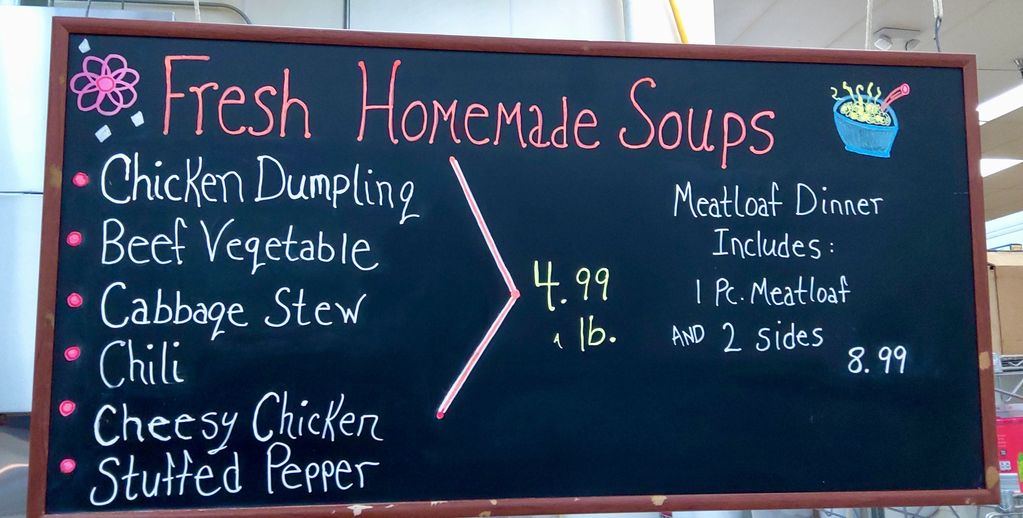 Fresh Homemade Soups
Chicken Dumpling
Beef Vegetable
Cabbage Stew
Chili
Cheesy Chicken
Stuffed Pepper
4.99
lb.
Meatloaf Dinner
Includes:
1 Pc. Meatloaf
AND 2 sides
8.99